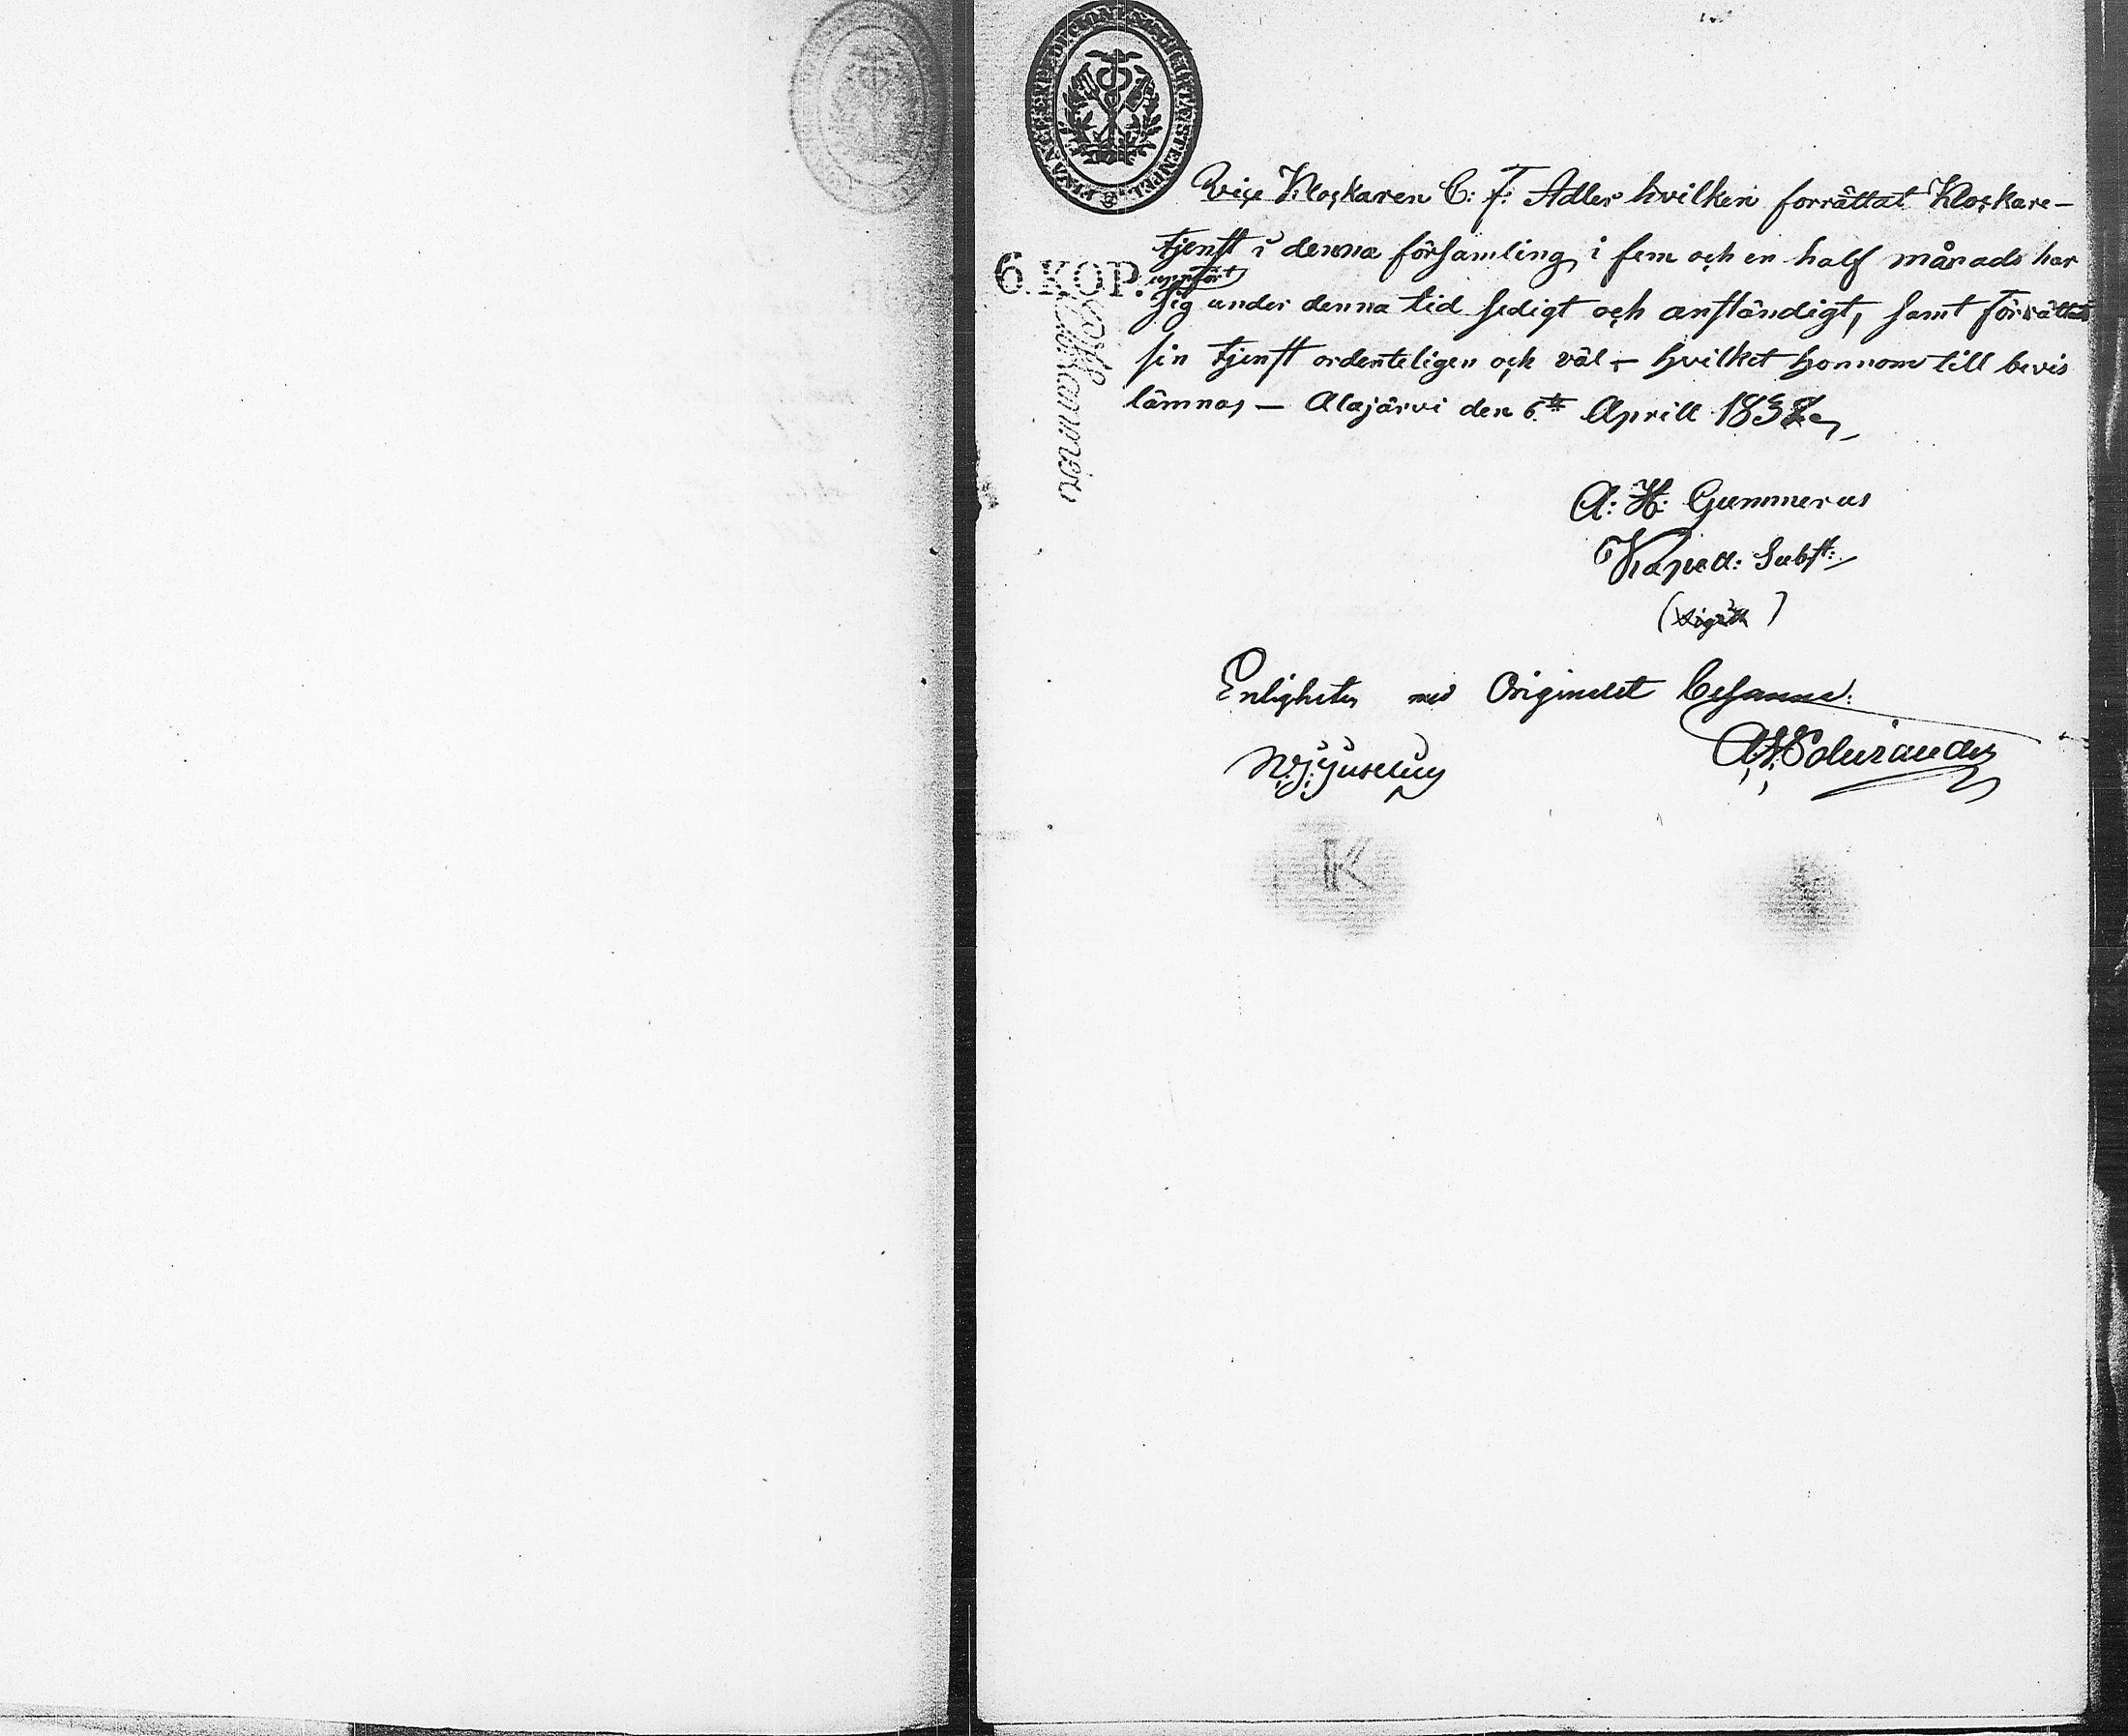 6. KOP.
Vice Klockaren C: F: Adler hvilken forrättat Klockare-
tjenst i denna församling i fem och en half månads har
uppfört
sig under denna tid sedigt och anständigt, samt förrättat
sin tjenst ordenteligen och väl - hvilket honnom till bevis
lämnas - Alajärvi den 6te Aprill 1837
A: H: Gummerus
Kapell: Subst:
Enligheten med Originalet besanna:
K